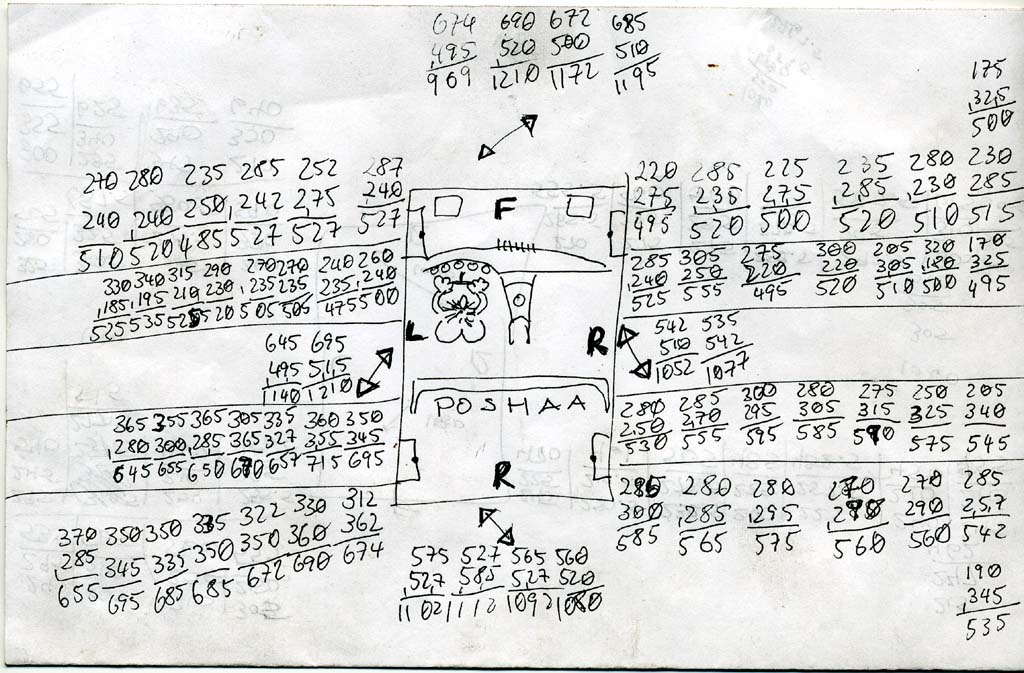 674 690 672 685
,495 ,520 500 510
969 1210 1172 1195
175
,325
500
270 280 235 285 252 287
240 ,240 250 ,242 ,275 240
510 520 485 527 527 527
220 285 225 235 280 230
275 ,235 ,275 ,285 ,230 285
495 520 500 520 510 515
F
330 340 315 290 270 270 240 260
,185 ,195 ,210 ,230 ,235 235 235 ,240
525 535 525 520 505 505 475 500
285 305 275 300 205 320 170
,240 250 220 220 305 ,180 325
525 555 495 520 510 500 495
L
R
645 695
,495 ,515
1140 1210
542 535
510 542
1052 1077
POSHAA
365 355 365 305 335 360 350
,280 300 ,285 ,365 ,327 355 ,345
645 655 650 670 657 715 695
280 285 300 280 275 250 205
250 ,270 295 305 315 325 340
530 555 595 585 590 575 545
R
370 350 350 335 322 330 312
,285 345 335 350 350 360 362
655 695 685 685 672 690 674
285 280 280 270 270 285
300 ,285 ,295 ,290 290 ,257
585 565 575 560 560 542
575 527 565 560
,527 ,585 ,527 520
1102 1112 1092 1080
190
,345
535